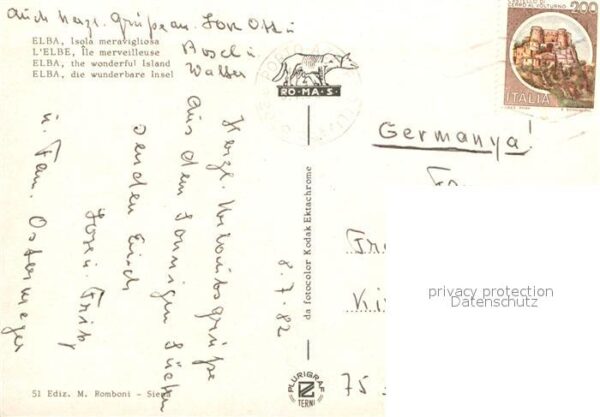 auch herzl. Grüße an
ELBA, Isola meravigliosa
L'ELBE, Île merveilleuse
ELBA, the wonderful Island
ELBA, die wunderbare Insel
Walter
Herzl. Urlaubsgrüße
aus dem sonnigen Süden
senden Euch
Fritz
u. Fam. Ostermayer
8.7.82
RO-MA-S.
da fotocolor Kodak Ektachrome
PLURIGRAF
TERNI
51 Ediz. M. Romboni - Siena
CERRO AL VOLTURNO
200
ITALIA
Germanya!
privacy protection
Datenschutz
75